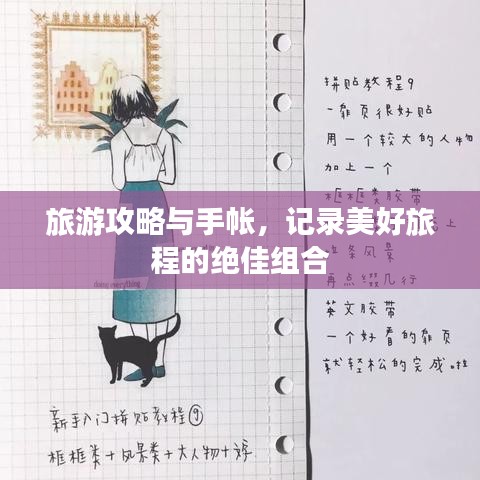 拼贴教程9
一靠页很好贴
用一个较大的人物
加上一个
框框类胶带
旅游攻略与手帐，记录美好旅
程的绝佳组合
再点缀几行
英文胶带
一个好看的靠页
就轻松的完成啦
新手入门拼贴教程⑨
框框类+风景类+大人物+